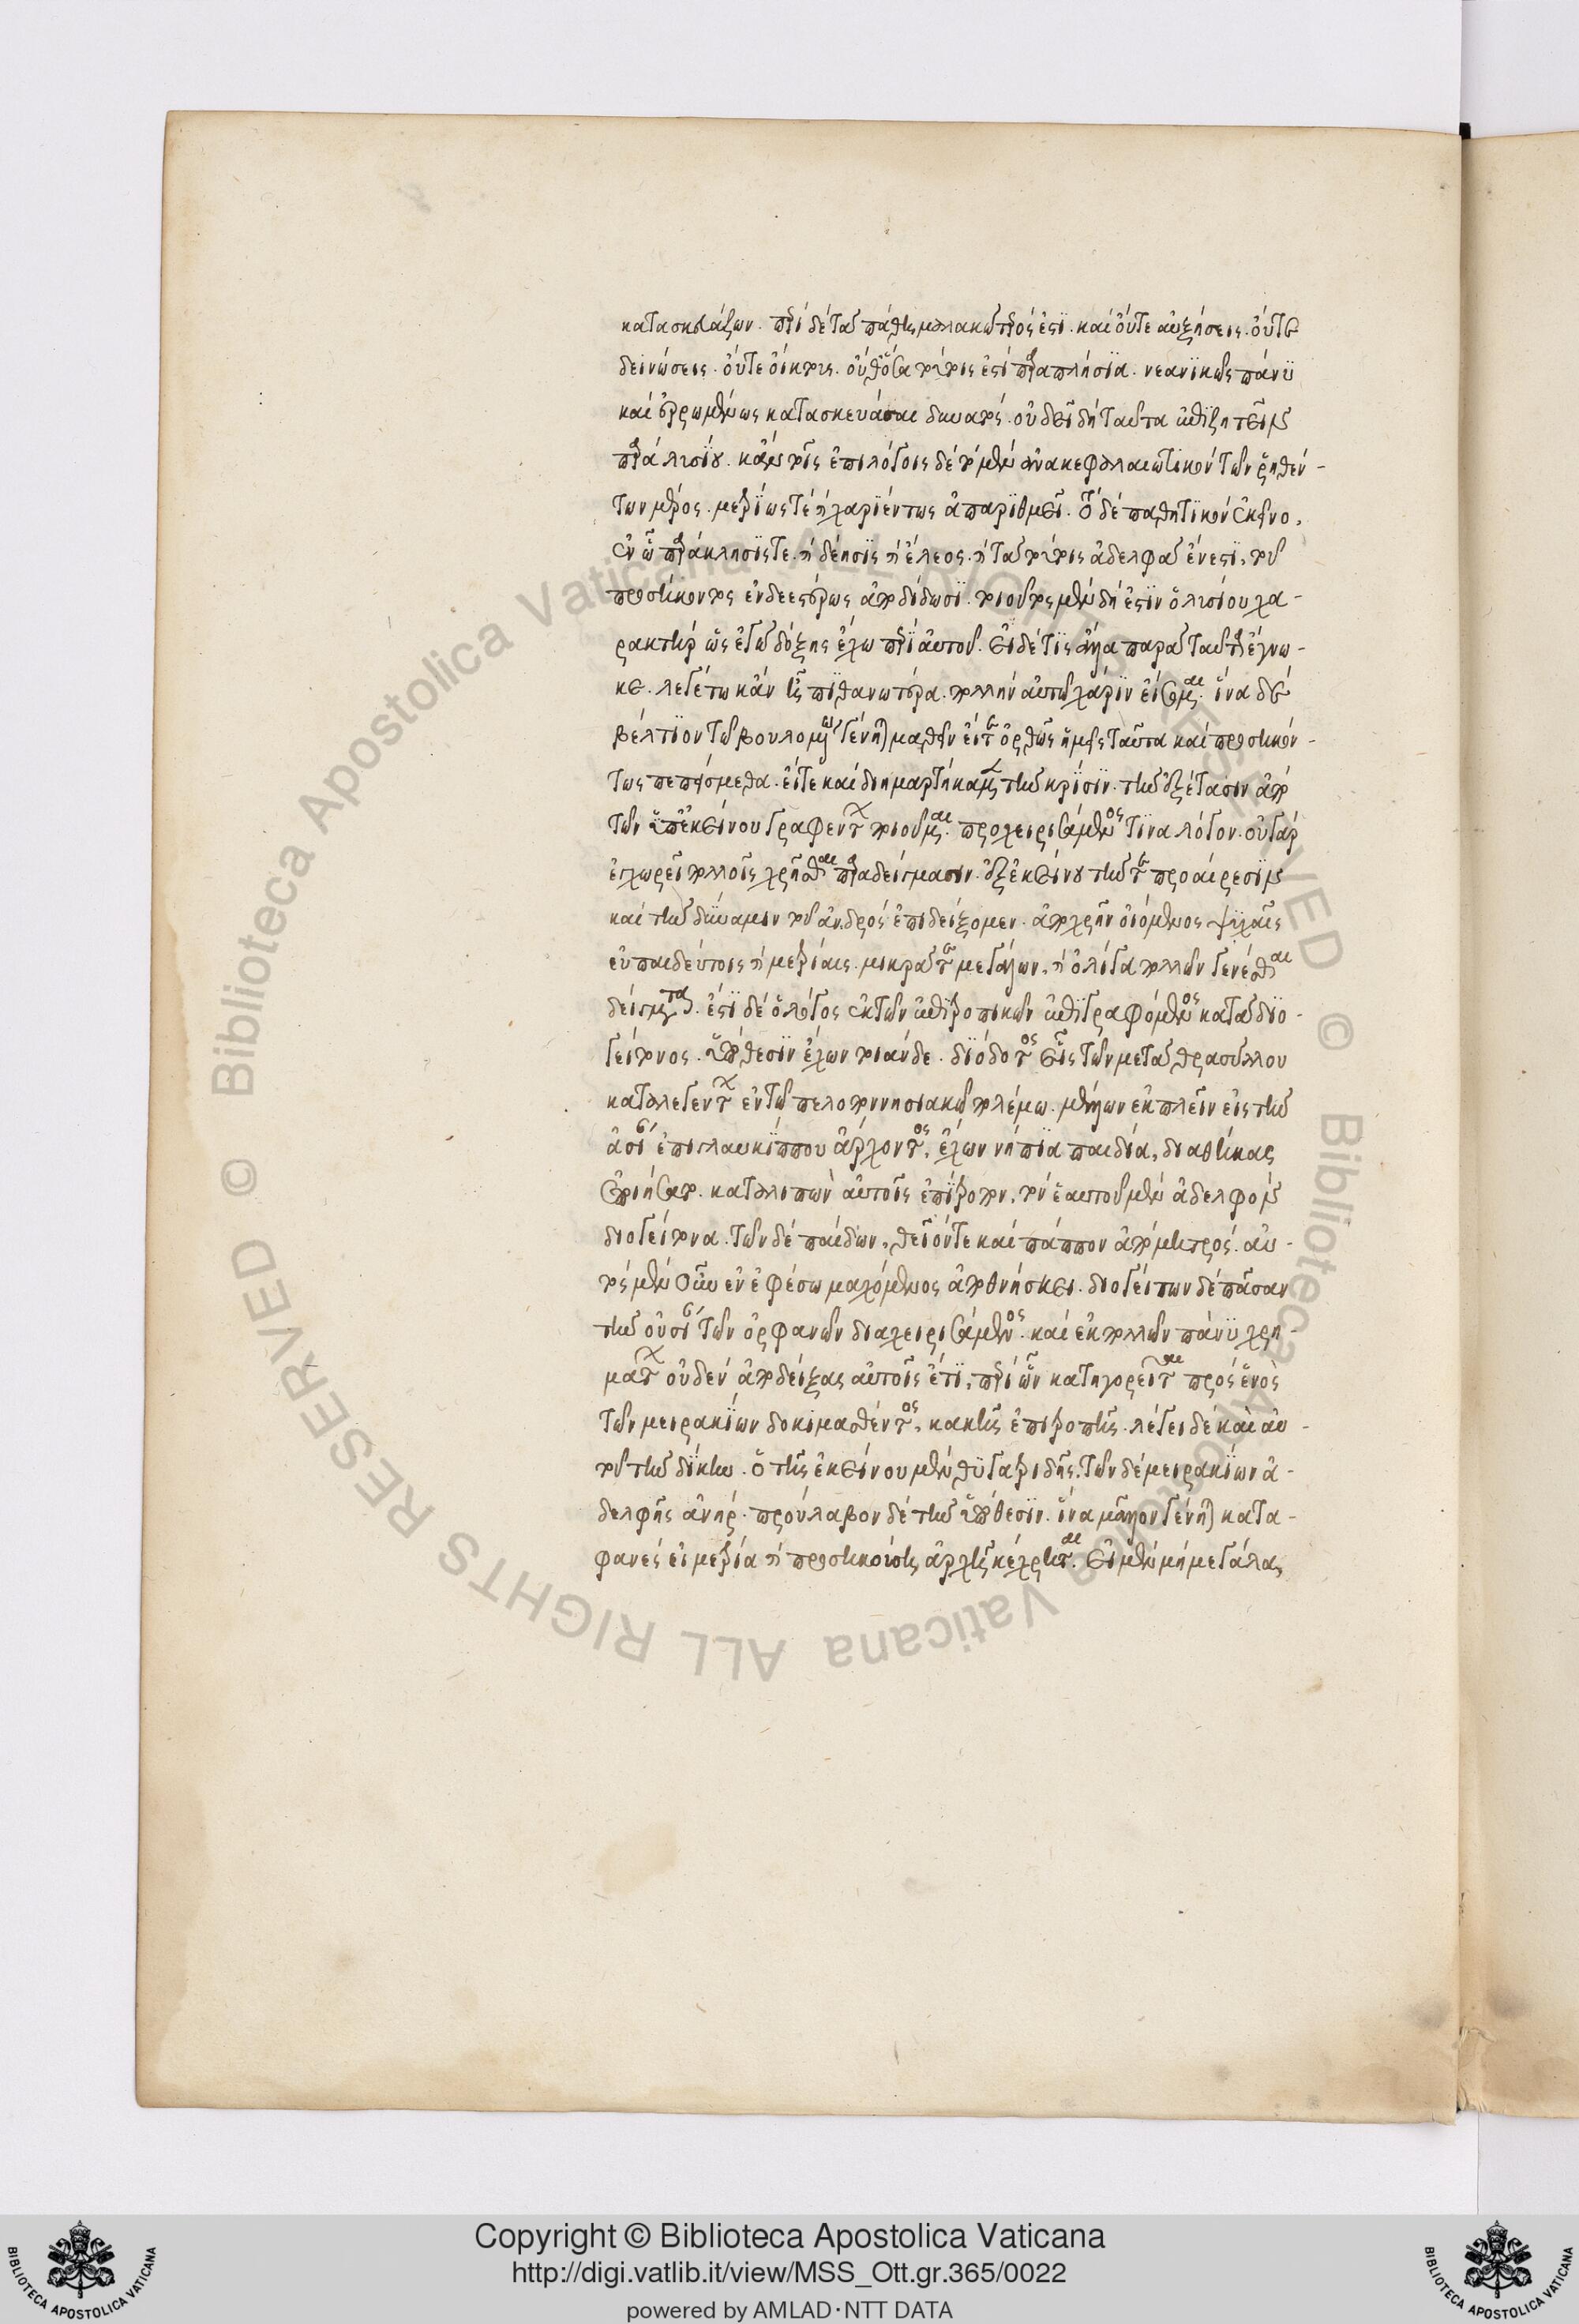 κατασκευάζων. περὶ δὲ τὰ πάθη μαλακώτερός ἐστι. καὶ οὔτε αὐξήσεις. οὔτε
δεινώσεις. οὔτε οἴκτους. οὔθ᾽ ὅσα τούτοις ἐστὶ παραπλήσια. νεανικῶς πάνυ
καὶ ἐρρωμένως κατασκευάσαι δυνατός. οὐ δεῖ δὴ ταῦτα ἐπιζητεῖν
παρὰ λυσίου. κἀν τοῖς ἐπιλόγοις δὲ τὸ μὲν ἀνακεφαλαιωτικὸν τῶν ῥηθέν-
των μέρος. μετρίως τὲ ἢ χαριέντως ἀπαριθμεῖ. τὸ δὲ παθητικὸν ἐκεῖνο.
ἐν ᾧ παράκλησίς τε. ἢ δέησις ἢ ἔλεος. ἢ τὰ τούτοις ἀδελφὰ ἔνεστι, τοῦ
προσήκοντος ἐνδεεστέρως ἀποδίδωσι. τοιοῦτος μὲν δή ἐστιν ὁ λυσίου χα-
ρακτὴρ ὡς ἐγὼ δόξης ἔχω περὶ αὐτοῦ. εἰ δέ τις ἄλλα παρὰ ταῦτα ἔγνω-
κε. λεγέτω κἂν ᾖ πιθανώτερα. πολλὴν αὐτῷ χάριν εἴσομαι. ἵνα δὲ
βέλτιον τῷ βουλομένῳ γένηται μαθεῖν εἴτε ὀρθῶς ἡμεῖς ταῦτα καὶ προσηκόν-
τως πεπείσμεθα. εἴτε καὶ διημαρτήκαμεν τὴν κρίσιν. τὴν ἐξέτασιν ἀπὸ
τῶν ὑπ᾽ ἐκείνου γραφέντων ποιοῦμαι. προχειρισάμενος τινα λόγον. οὐ γὰρ
ἐγχωρεῖ πολλοῖς χρῆσθαι παραδείγμασιν. ἐξ ἐκείνου τήν τε προαίρεσιν
καὶ τὴν δύναμιν τοῦ ἀνδρὸς ἐπιδείξομεν. ἀποχρῆν οἰόμενος ψυχαῖς
εὐπαιδεύτοις ἢ μετρίαις. μικρά τε μεγάλων, ἢ ὀλίγα πολλῶν γενέσθαι
δείγματα. ἔστι δὲ ὁ λόγος ἐκ τῶν ἐπιτροπικῶν ἐπιγραφόμενος κατὰ διο-
γείτονος. ὑπόθεσιν ἔχων τοιάνδε. διόδοτος εἷς τῶν μετὰ θρασύλλου
καταλεγέντων ἐν τῷ πελοποννησιακῷ πολέμῳ. μέλλων ἐκπλεῖν εἰς τὴν
ἀσίαν ἐπὶ γλαυκίππου ἄρχοντος, ἔχων νήπια παιδία, διαθήκας
ἐποιήσατο. καταλιπὼν αὐτοῖς ἐπίτροπον, τὸν ἑαυτοῦ μὲν ἀδελφὸν
διογείτονα. τῶν δὲ παίδων, θεῖόν τε καὶ πάππον ἀπὸ μητρός. αὐ-
τὸς μὲν οὖν ἐν ἐφέσῳ μαχόμενος ἀποθνήσκει. διογείτων δὲ πᾶσαν
τὴν οὐσίαν τῶν ὀρφανῶν διαχειρισάμενος. καὶ ἐκ πολλῶν πάνυ χρη-
μάτων οὐδὲν ἀποδείξας αὐτοῖς ἔτι, περὶ ὧν κατηγορεῖται πρὸς ἑνὸς
τῶν μειρακίων δοκιμασθέντος, κακῆς ἐπιτροπῆς. λέγει δὲ κατ᾽ αὐ-
τοῦ τὴν δίκην. ὁ τῆς ἐκείνου μὲν θυγατριδῆς. τῶν δὲ μειρακίων ἀ-
δελφῆς ἀνήρ. προύλαβον δὲ τὴν ὑπόθεσιν. ἵνα μᾶλλον γένηται κατα-
φανὲς εἰ μετρία ἢ προσηκούσῃ ἀρχῇ κέχρηται. εἰ μὲν μὴ μεγάλας
Copyright © Biblioteca Apostolica Vaticana
http://digi.vatlib.it/view/MSS_Ott.gr.365/0022
powered by AMLAD·NTT DATA